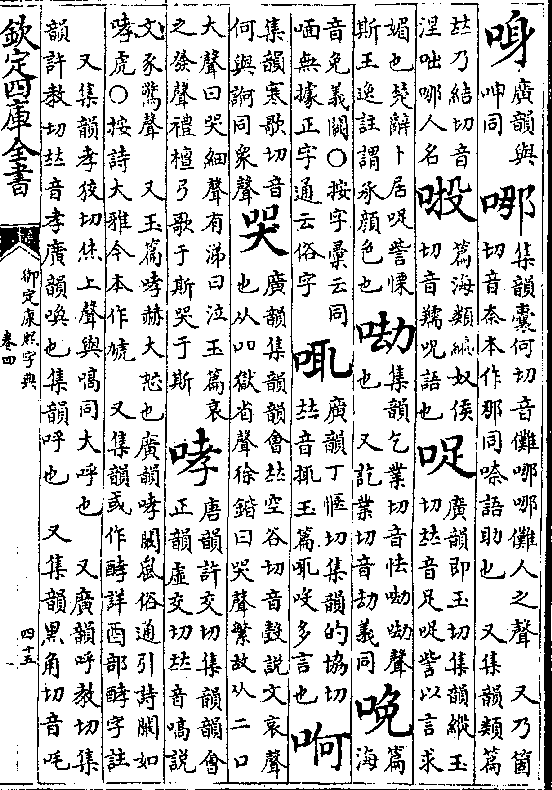 廣韻與
呻同
哪
集韻囊何切音儺哪哪儺人之聲 又乃箇
切音柰本作那同嗦語助也 又集韻類篇
𠀤乃結切音
涅咄哪人名
篇海類編奴侯
切音羺呪語也
哫
廣韻即玉切集韻縱玉
切𠀤音足哫訾以言求
媚也楚辭卜居哫訾慄
斯王逸註謂承顔色也
集韻乞業切音怯聲
也 又訖業切音劫義同
篇
海
音免義闕○按字彙云同
無據正字通云俗字
㖏
廣韻丁愜切集韻的協切
𠀤音輒玉篇㖏㕞多言也
哬
集韻寒歌切音
何與訶同衆聲
哭
廣韻集韻韻會𠀤空谷切音㱿說文哀聲
也从吅獄省聲徐鍇曰哭聲繁故从二口
大聲曰哭細聲有涕曰泣玉篇哀
之發聲禮檀弓歌于斯哭于斯
哮
唐韻許交切集韻韻會
正韻虛交切𠀤音嘐說
文豕驚聲 又玉篇哮赫大怒也廣韻哮闞鼠俗通引詩闞如
哮虎○按詩大雅今本作虓 又集韻或作酵詳酉部酵字註
又集韻孝狡切㷅上聲與嗃同大呼也 又廣韻呼教切集
韻許教切𠀤音孝廣韻喚也集韻呼也 又集韻黑角切音吒
欽定四庫全書
御定康熙字典
卷四
四十五